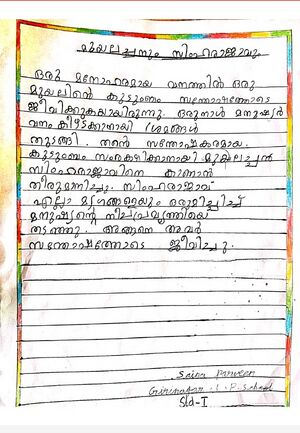 മുയലച്ചനും സിംഹരാജാവും
ഒരു മനോഹരമായ വനത്തിൽ ഒരു
മുയലിന്റെ കുടുംബം സന്തോഷത്തോടെ
ജീവിക്കുകയായിരുന്നു. ഒരുനാൾ മനുഷ്യർ
വനം കീഴടക്കാനായി ശ്രമങ്ങൾ
തുടങ്ങി. തന്റെ സന്തോഷകരമായ
കുടുംബം സംരക്ഷിക്കാനായി മുയലച്ചൻ
സിംഹരാജാവിനെ കാണാൻ
തീരുമാനിച്ചു. സിംഹരാജാവ്
എല്ലാ മൃഗങ്ങളെയും ഒരുമിച്ചിച്ച്
മനുഷ്യന്റെ നീചപ്രവൃത്തിയെ
തടഞ്ഞു. അങ്ങനെ അവർ
സന്തോഷത്തോടെ ജീവിച്ചു.
Saina Parveen
Girinagar L.P. School
Std-I